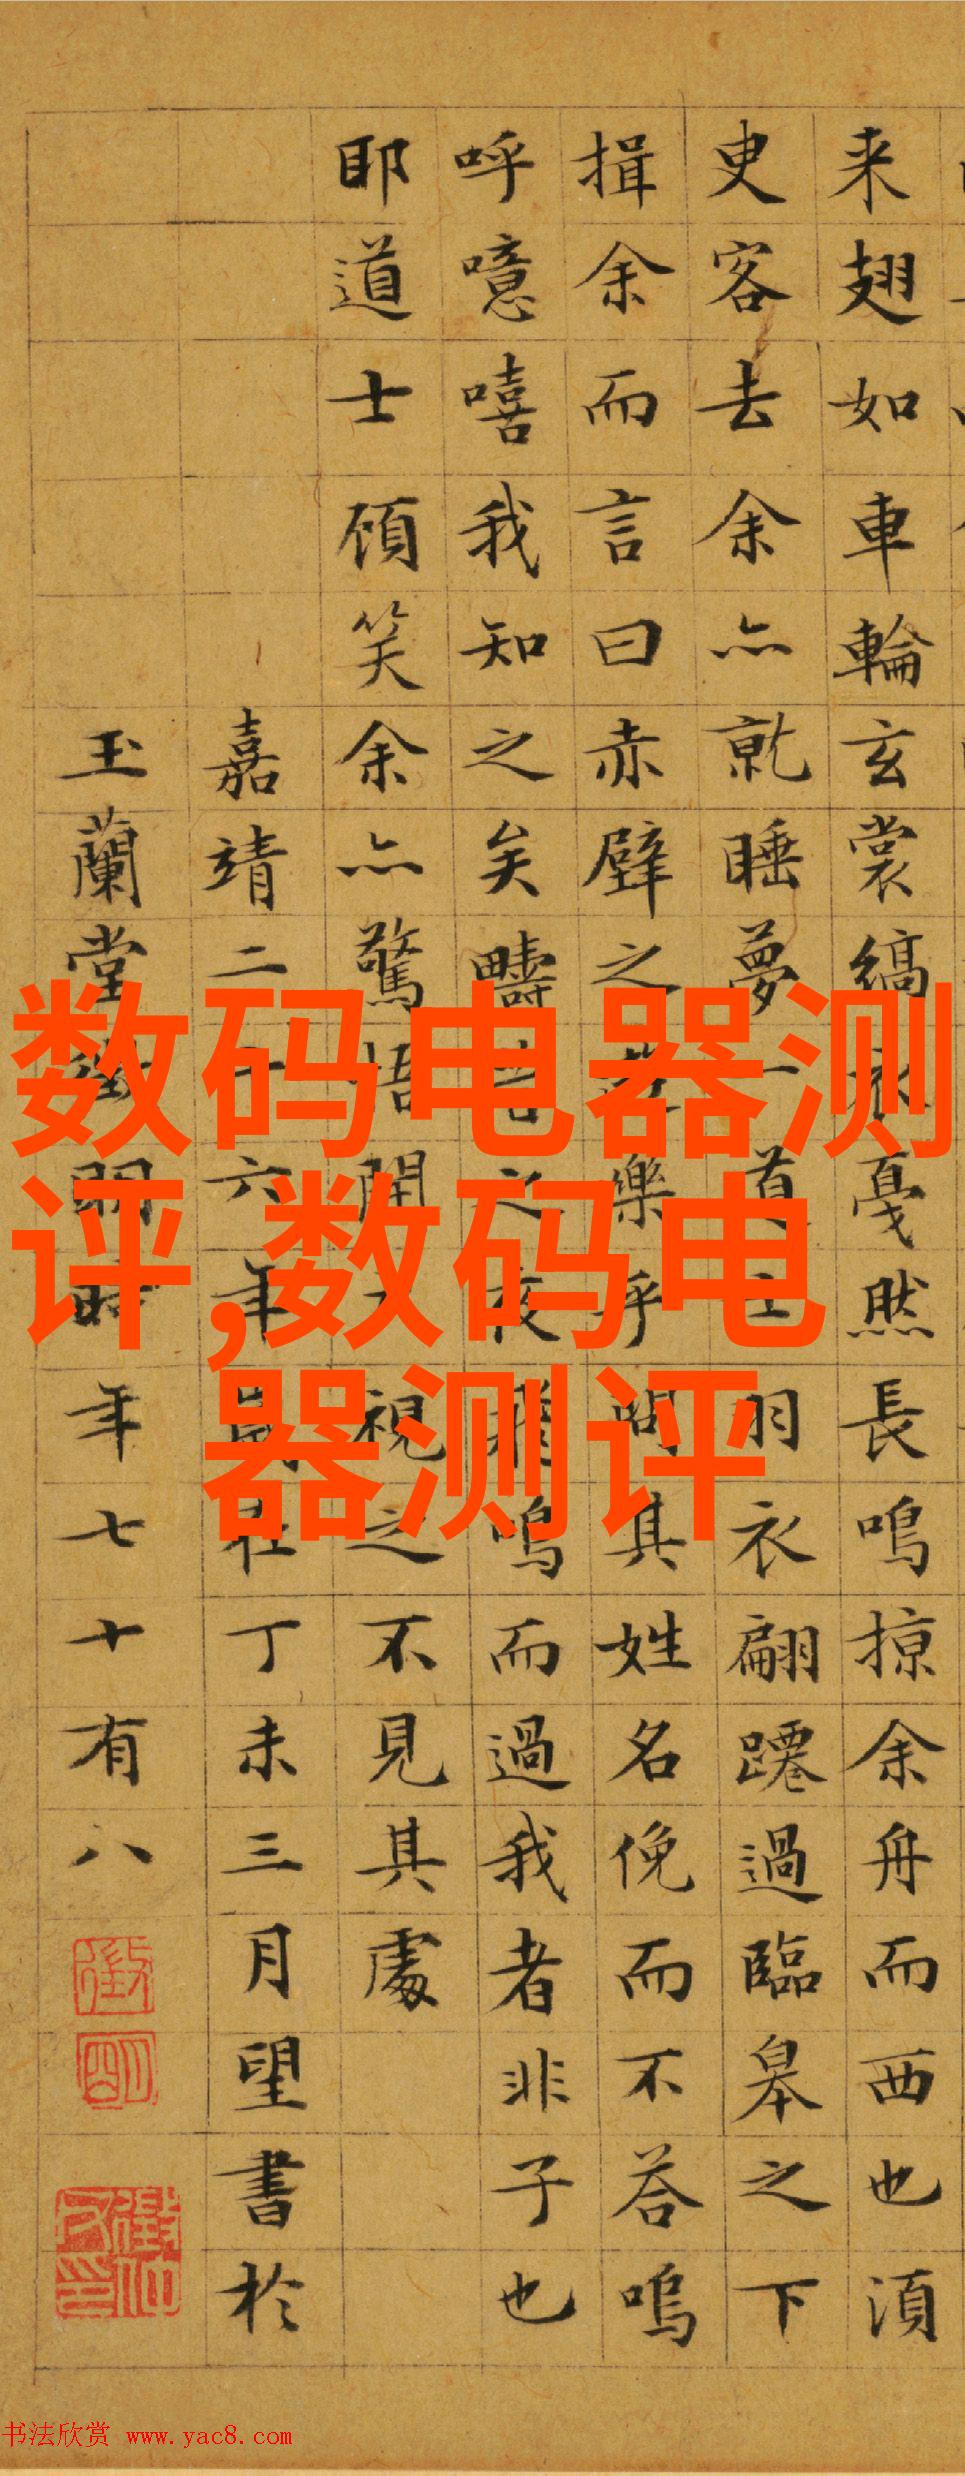 来翅如車輪玄裳縞衣戞然長鳴掠余舟而西也湏
叓客去余亦就睡夢一道士羽衣翩躚過臨皋之下
揖余而言曰赤壁之遊樂乎問其姓名俛而不荅嗚
呼噫嘻我知之矣疇昔之夜飛鳴而過我者非子也
耶道士顧笑余亦驚悟開戶視之不見其處
嘉靖二十六年歲在丁未三月望書於
玉蘭堂徵明時年七十有八
徵
明
数码电器测
评,数码电
器测评
书法欣赏 www.yac8.com